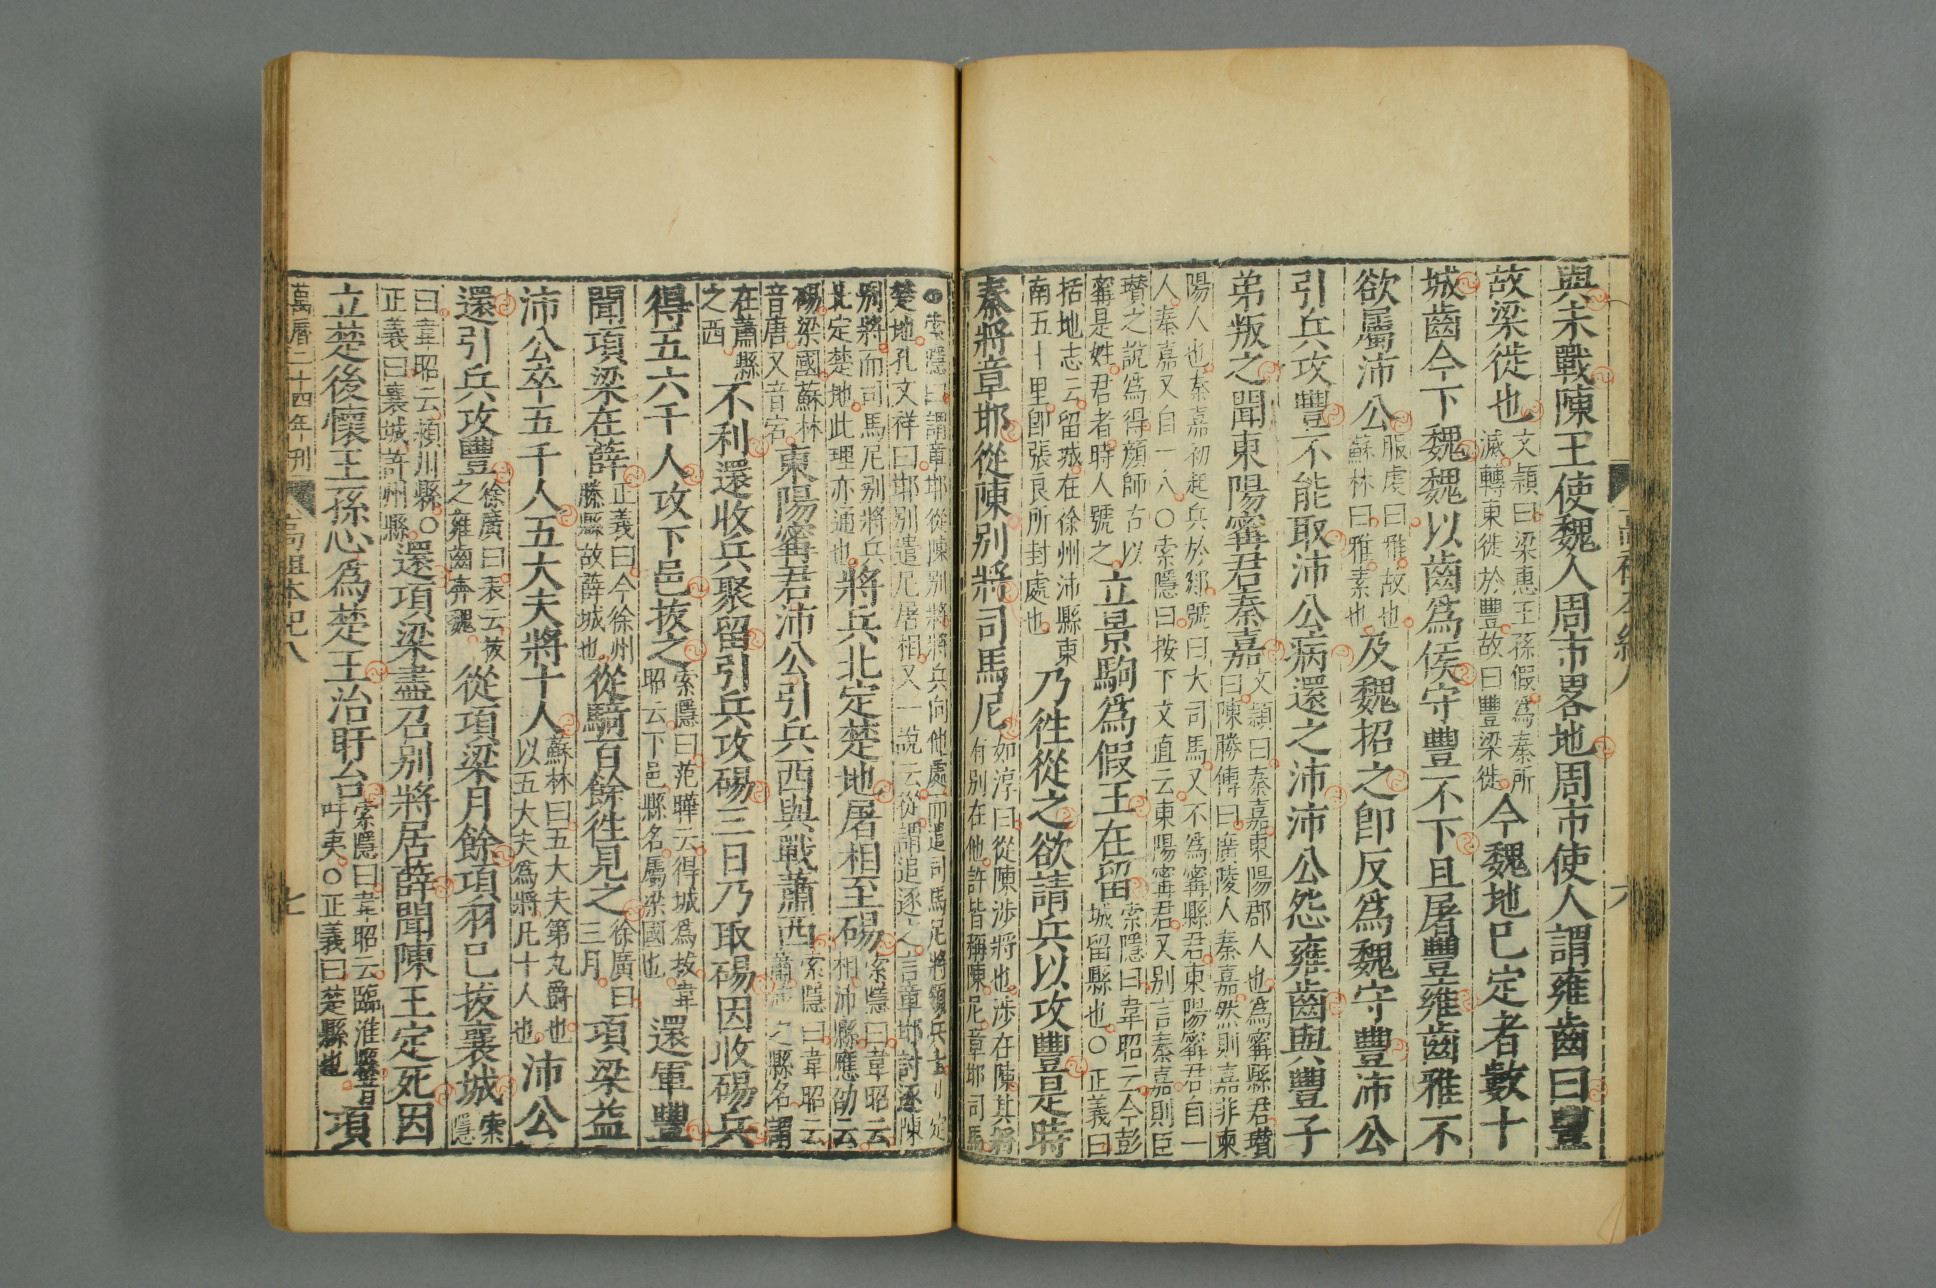 高祖本紀八 六
與未戰陳王使魏人周市畧地周市使人謂雍齒曰豐
故梁徙也文穎曰梁惠王孫假為秦所滅轉東徙於豐故曰豐梁徙今魏地已定者數十
城齒今下魏魏以齒爲侯守豐不下且屠豐雍齒雅不
欲屬沛公服虔曰雅故也蘇林曰雅素也及魏招之卽反爲魏守豐沛公
引兵攻豐不能取沛公病還之沛沛公怨雍齒與豐子
弟叛之聞東陽甯君秦嘉文穎曰秦嘉東陽郡人也為甯縣君瓚曰陳勝傳曰廣陵人秦嘉然則嘉非東
陽人也秦嘉初起兵於郯號曰大司馬又不為甯縣君東陽甯君自一人秦嘉又自一人○索隱曰按下文直云東陽甯君又別言秦嘉則臣
瓚之說為得顏師古以甯是姓君者時人號之立景駒爲假王在留索隱曰韋昭云今彭城留縣也○正義曰
括地志云留城在徐州沛縣東南五十里卽張良所封處也乃往從之欲請兵以攻豐是時
秦將章邯從陳別將司馬尼如淳曰從陳涉將也涉在陳其將有別在他許皆稱陳尼章邯司馬
○索隱曰謂章邯從陳別將將兵向他處而遣司馬尼將領兵士北定楚地孔文祥曰邯別遣尼屠相又一說云從謂追逐之言章邯討逐陳
別將而司馬尼別將兵北定楚地此理亦通也將兵北定楚地屠相至碭索隱曰韋昭云相沛縣應劭云
碭梁國蘇林音唐又音宕東陽甯君沛公引兵西與戰蕭西索隱曰韋昭云蕭沛之縣名謂
在蕭縣之西不利還收兵聚留引兵攻碭三日乃取碭因收碭兵
得五六千人攻下邑拔之索隱曰范曄云得城為拔韋昭云下邑縣名屬梁國也還軍豐
聞項梁在薛正義曰今徐州滕縣故薛城也從騎百餘往見之徐廣曰三月項梁益
沛公卒五千人五大夫將十人蘇林曰五大夫第九爵也以五大夫為將凡十人也沛公
還引兵攻豐徐廣曰表云拔之雍齒奔魏從項梁月餘項羽已拔襄城索隱
曰韋昭云潁川縣○正義曰襄城許州縣還項梁盡召別將居薛聞陳王定死因
立楚後懷王孫心爲楚王治盱台索隱曰韋昭云臨淮縣音吁夷○正義曰楚縣也項
萬曆二十四年刊 高祖本紀八 七